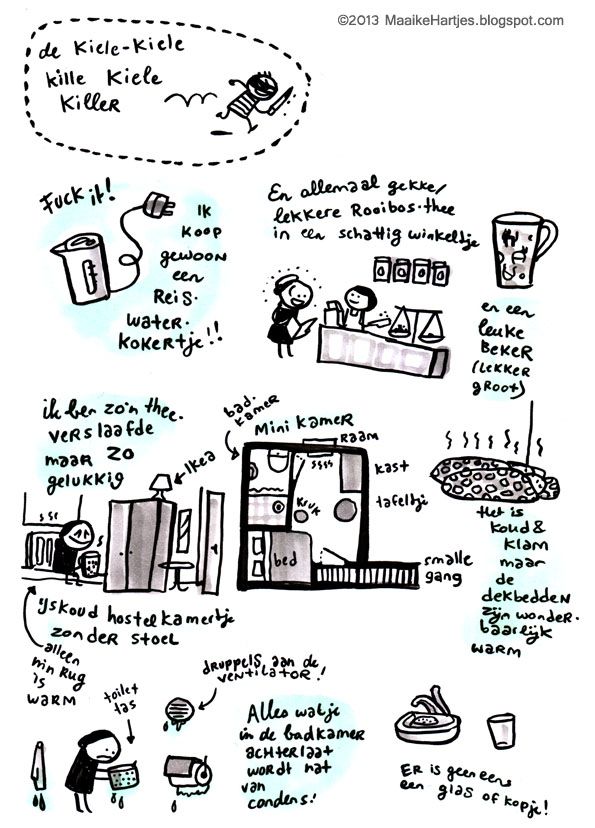 ©2013 MaaikeHartjes.blogspot.com
de Kiele-Kiele
kille Kiele
Killer
Fuck it!
IK
KOOP
gewoon
een
Reis.
water.
kokertje!!
En allemaal gekke/
lekkere Rooibos-thee
in een schattig winkeltje
en een
leuke
BEKER
(LEKKER
groot)
ik ben zo'n thee.
verslaafde
maar zo
gelukkig
Ikea
bad.
kamer
Mini kamer
Raam
kast
tafeltje
KRUK
bed
smalle
gang
Het is
koud &
klam
maar
de
dekbedden
zijn wonder.
baarlijk
warm
ijskoud hostelkamertje
zonder stoel
alleen
mijn Rug
is
warm
toilet
tas
druppels aan de
ventilator!
Alles wat je
in de badkamer
achterlaat
wordt nat
van
condens!
Er is geen eens
een glas of kopje!